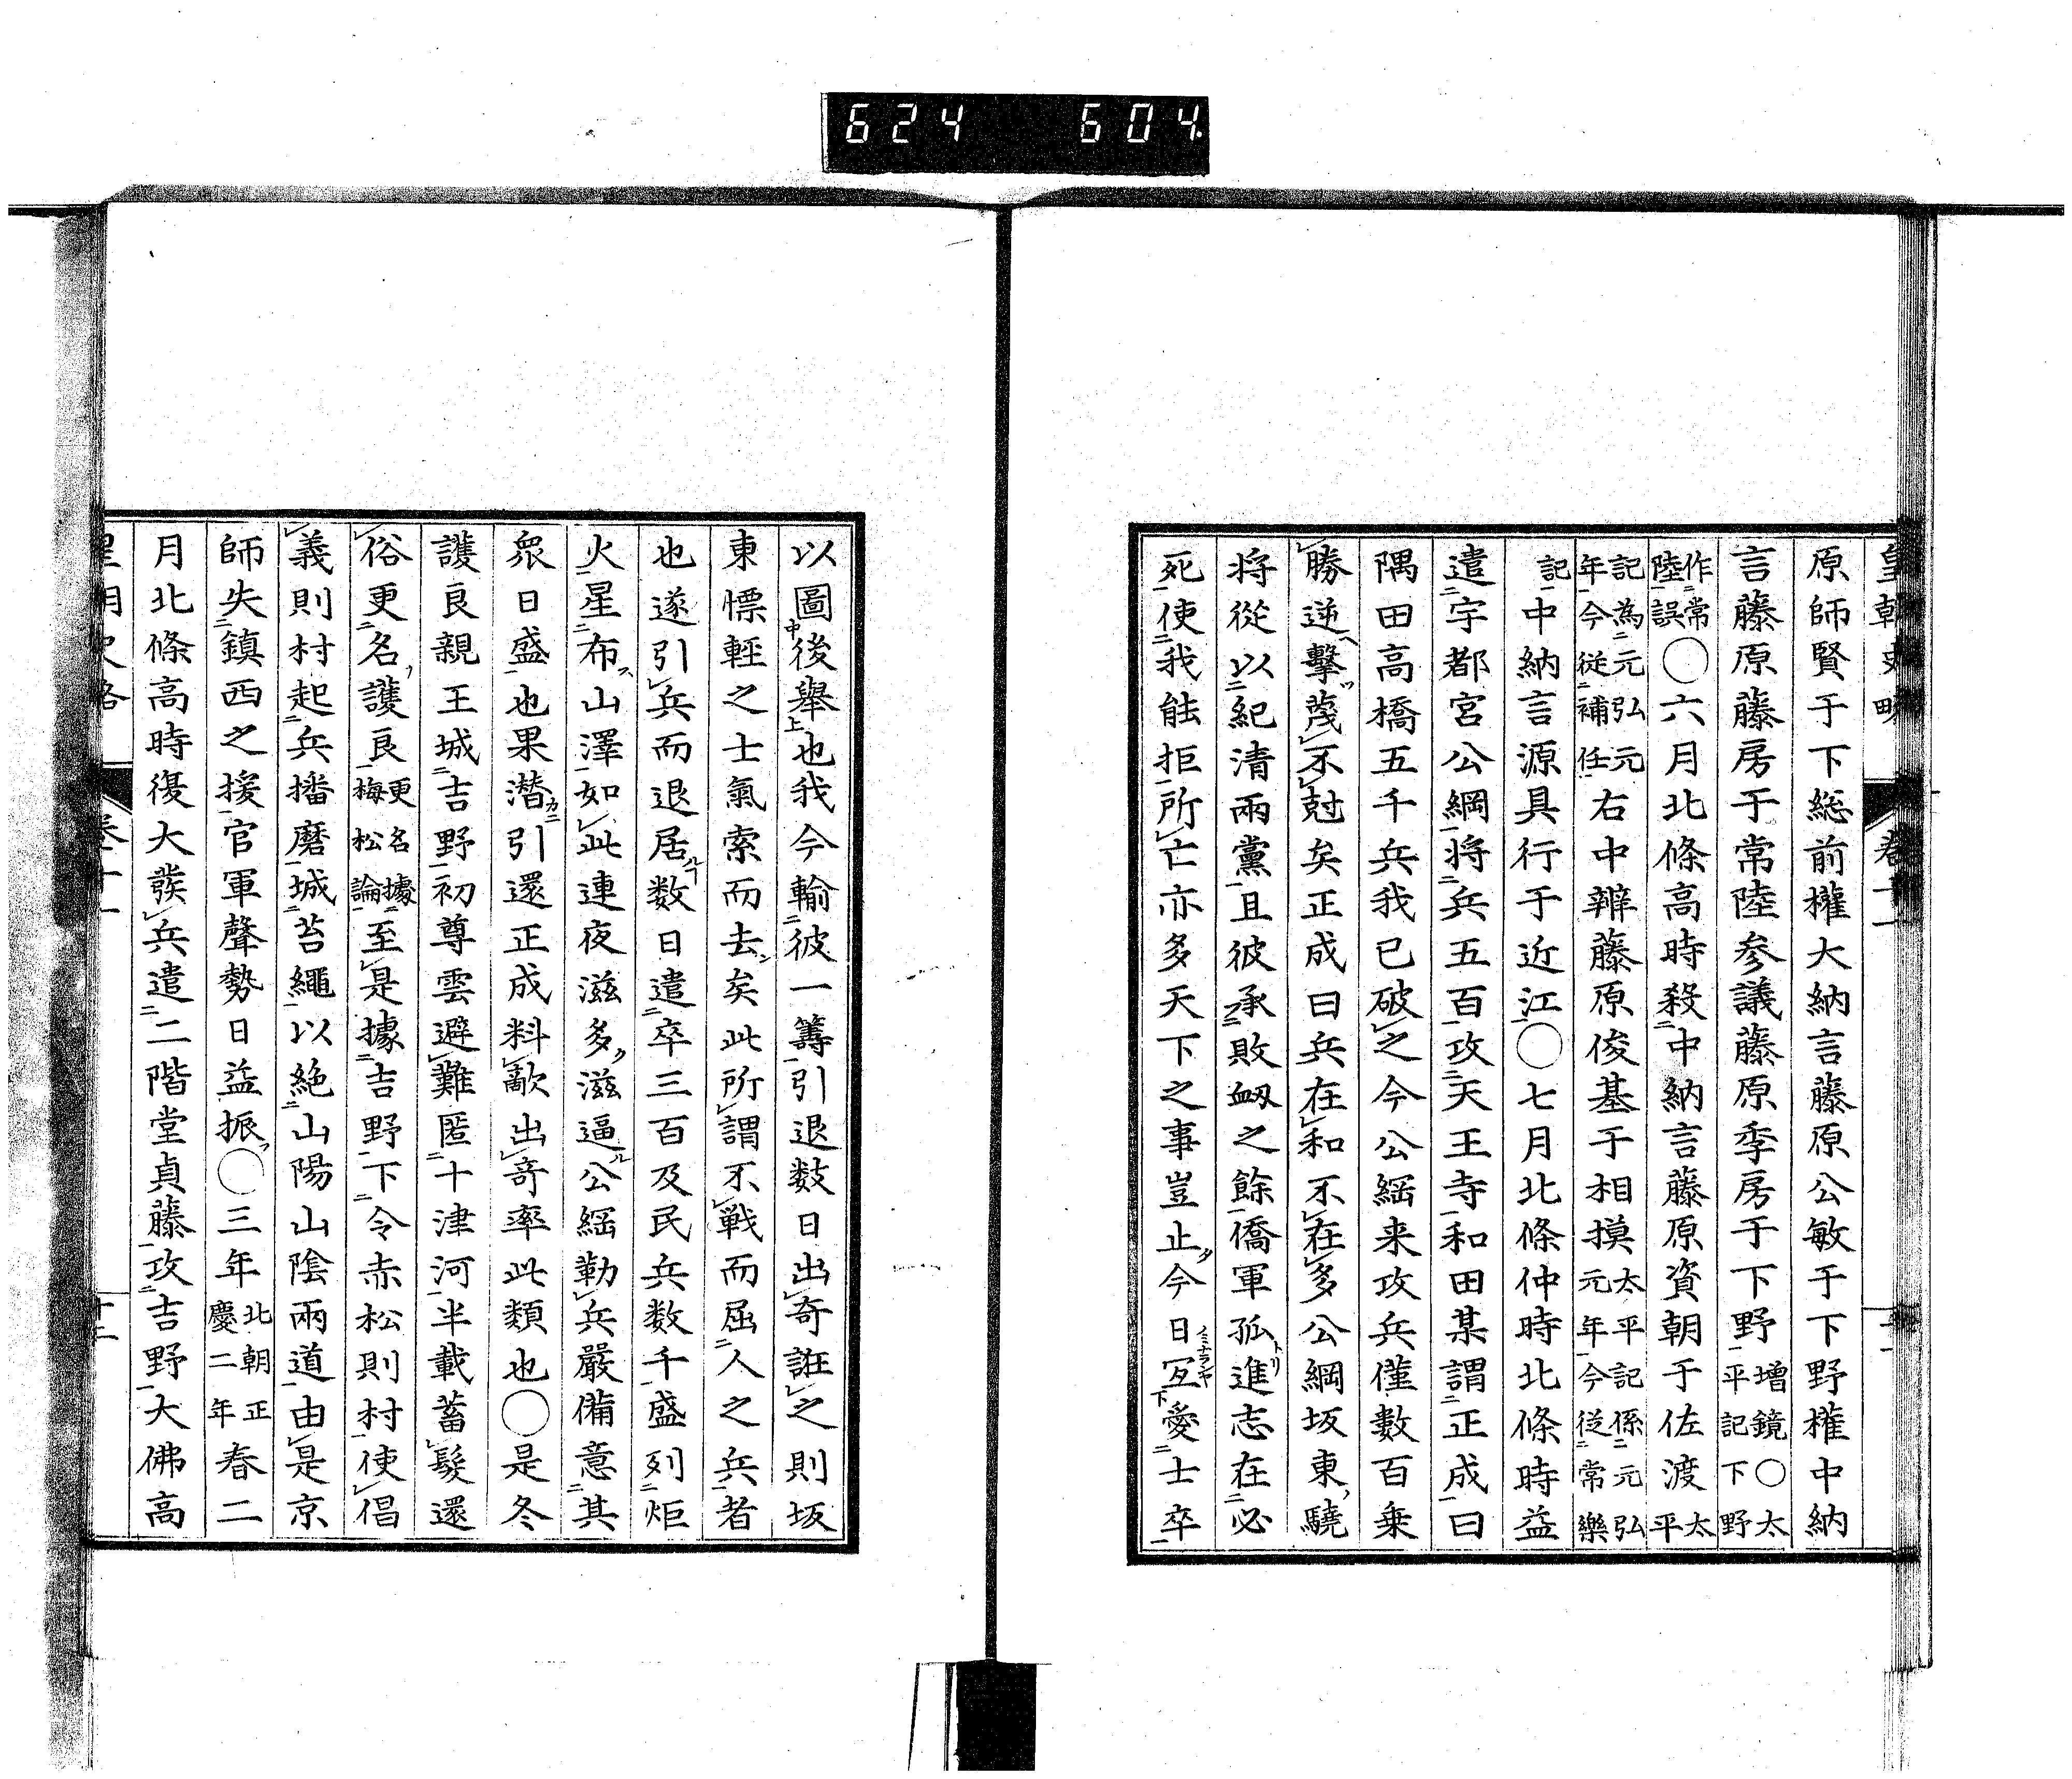 624 604
皇朝史略
卷十一
原師賢于下総前權大納言藤原公敏于下野權中納
言藤原藤房于常陸参議藤原季房于下野增鏡○太平記下野
作常陸誤○六月北條高時殺中納言藤原資朝于佐渡太平
記為元弘元年今從補任右中辨藤原俊基于相摸太平記係元弘元年今從常樂
記中納言源具行于近江○七月北條仲時北條時益
遣宇都宮公綱將兵五百攻天王寺和田某謂正成曰
隅田高橋五千兵我已破之今公綱来攻兵僅數百乗
勝逆擊蔑不尅矣正成曰兵在和不在多公綱坂東驍
将從以紀清兩黨且彼承敗衂之餘僑軍孤進志在必
死使我能拒所亡亦多天下之事豈止今日冝愛士卒
以圖後舉也我今輸彼一籌引退数日出奇誑之則坂
東慓輕之士氣索而去矣此所謂不戦而屈人之兵者
也遂引兵而退居数日遣卒三百及民兵数千盛列炬
火星布山澤如此連夜滋多滋逼公綱勒兵嚴備意其
衆日盛也果潜引還正成料敵出奇率此類也○是冬
護良親王城吉野初尊雲避難匿十津河半載蓄髮還
俗更名護良更名據梅松論至是據吉野下令赤松則村使倡
義則村起兵播磨城苔繩以絶山陽山陰兩道由是京
師失鎮西之援官軍聲勢日益振○三年北朝正慶二年春二
月北條高時復大發兵遣二階堂貞藤攻吉野大佛高
十二